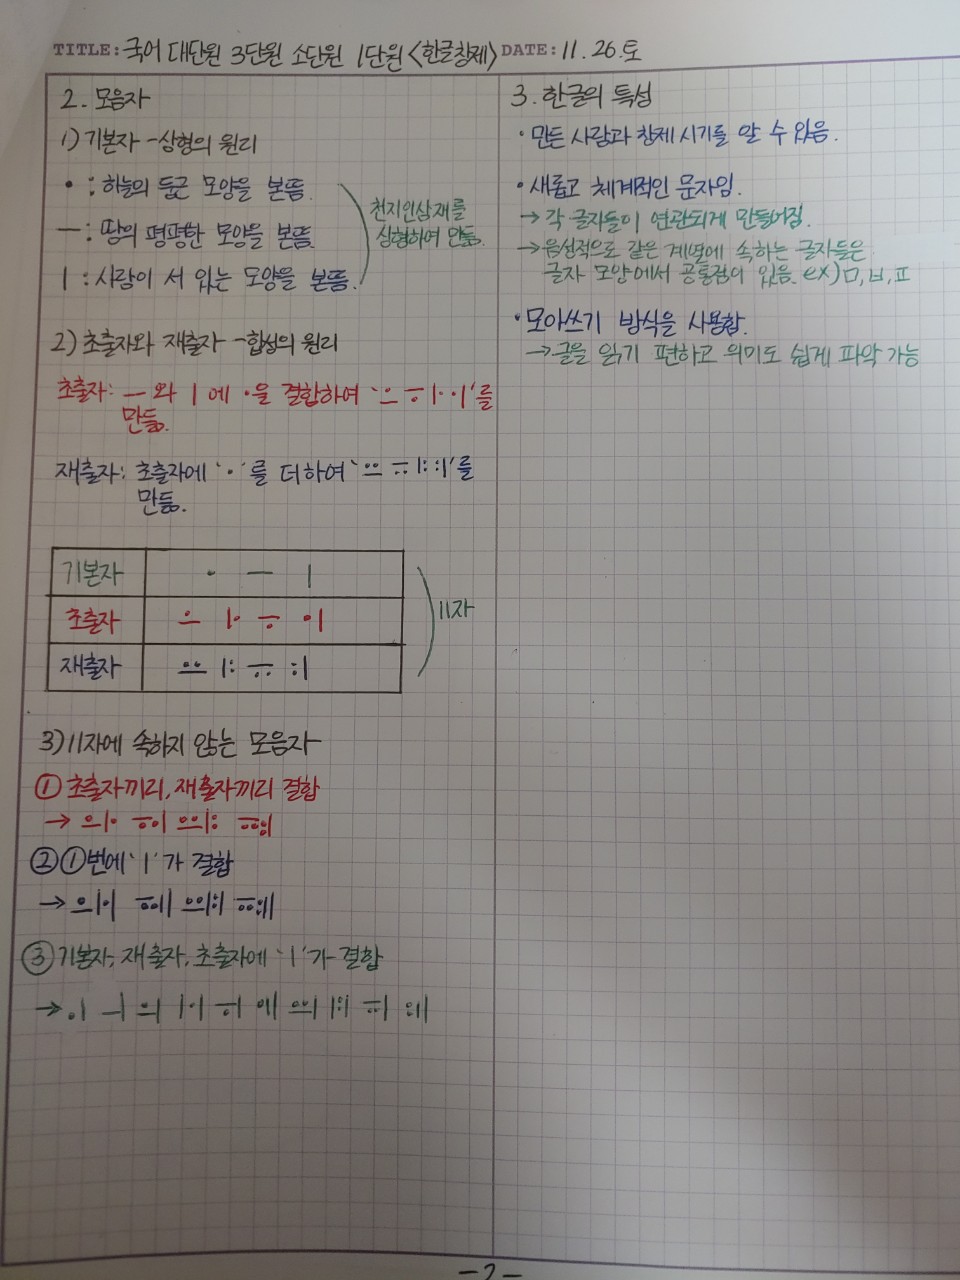 TITLE: 국어 대단원 3단원 소단원 1단원 <한글창제> DATE: 11.26.토
2. 모음자
1) 기본자 - 상형의 원리
• : 하늘의 둥근 모양을 본뜸.
ㅡ : 땅의 평평한 모양을 본뜸.
ㅣ : 사람이 서 있는 모양을 본뜸.
천지인삼재를
상형하여 만듦.
2) 초출자와 재출자 - 합성의 원리
초출자: ㅡ와 ㅣ에 •을 결합하여 'ㅗ ㅜ ㅏ ㅓ'를
만듦.
재출자: 초출자에 '•'를 더하여 'ㅛ ㅠ ㅑ ㅕ'를
만듦.
기본자 • ㅡ ㅣ
초출자 ㅗ ㅏ ㅜ ㅓ
재출자 ㅛ ㅑ ㅠ ㅕ
11자
3) 11자에 속하지 않는 모음자
① 초출자끼리, 재출자끼리 결합
→ ㅘ ㅝ ㆇ ㆊ
② ①번에 'ㅣ'가 결합
→ ㅙ ㅞ ㆈ ㆋ
③ 기본자, 재출자, 초출자에 'ㅣ'가 결합
→ ㆎ ㅢ ㅚ ㅐ ㅟ ㅔ ㆉ ㅒ ㆌ ㅖ
3. 한글의 특성
• 만든 사람과 창제 시기를 알 수 있음.
• 새롭고 체계적인 문자임.
→ 각 글자들이 연관되게 만들어짐.
→ 음성적으로 같은 계열에 속하는 글자들은
글자 모양에서 공통점이 있음. ex) ㅁ, ㅂ, ㅍ
• 모아쓰기 방식을 사용함.
→ 글을 읽기 편하고 의미도 쉽게 파악 가능
-2-